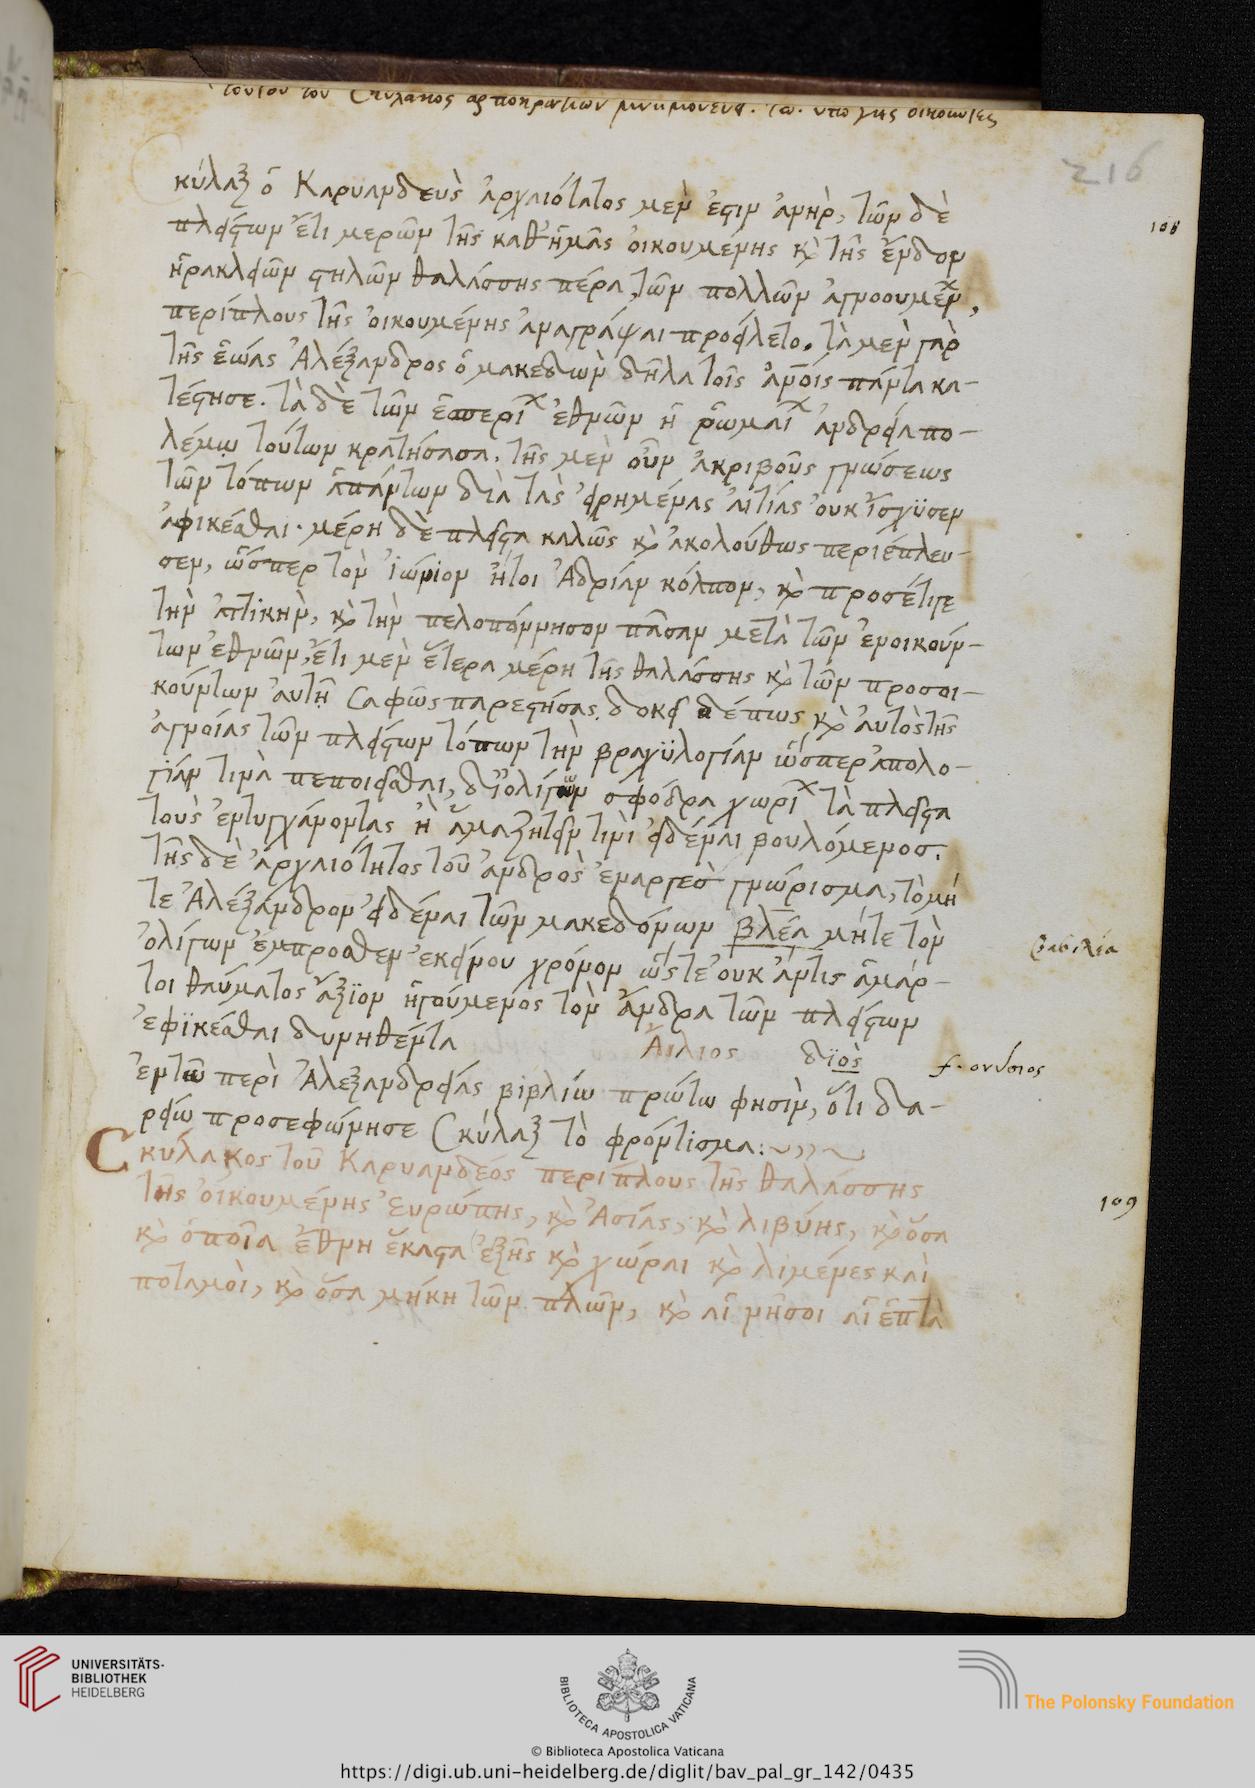 τούτου τοῦ Σκύλακος αρποκρατίων μνημονεύει. ἐν τῷ. ὑπὸ γῆς οἰκοῦντες
216
κύλαξ ὁ Καρυανδεὺς ἀρχαιότατος μὲν ἐστιν ἀνὴρ, τῶν δὲ
108
πλείστων ἔτι μερῶν τῆς καθ' ἡμᾶς οἰκουμένης κ̀ τῆς ἔνδον
ἡρακλείων στηλῶν θαλάσσης πέρα, τῶν πολλῶν ἀγνοουμέν,
περίπλους τῆς οἰκουμένης ἀναγράψαι προείλετο. τὰ μὲν γὰρ
τῆς ἑώας Ἀλέξανδρος ὁ μακεδὼν δῆλα τοῖς ἀνοῖς πάντα κα-
τέστησε. τὰ δὲ τῶν ἑσπερί ἐθνῶν ἡ ῥωμαί ἀνδρεία πο-
λέμω τούτων κρατήσασα. τῆς μὲν οὖν ἀκριβοῦς γνώσεως
τῶν τόπων ἁπάντων διὰ τὰς εἰρημένας αἰτίας οὐκ ἴσχϋσεν
ἀφικέσθαι. μέρη δὲ πλεῖστα καλῶς κ̀ ἀκολούθως περιέπλευ-
σεν, ὥσπερ τὸν ἰώνιον ἤτοι Ἀδρίαν κόλπον, κ̀ προσέτιγε
τὴν ἀττικὴν, κ̀ τὴν πελοπόννησον πᾶσαν μετὰ τῶν ἐνοικούν-
των ἐθνῶν, ἔτι μὲν ἕτερα μέρη τῆς θαλάσσης κ̀ τῶν προσοι-
κούντων αὐτῇ σαφῶς παρεστήσας. δοκεῖ δέ πως κ̀ αὐτὸς τῆς
ἀγνοίας τῶν πλείστων τόπων τὴν βραχϋλογίαν ὥσπερ ἀπολο-
γΐαν τινὰ πεποιεῖσθαι, δι' ὀλίγων σφόδρα χωρί τὰ πλεῖστα
τοὺς ἐντυγχάνοντας ἢ ἁμαζητεῖν τινὶ εἰδέναι βουλόμενος.
τῆς δὲ ἀρχαιότητος τοῦ ἀνδρὸς ἐναργεσ γνώρισμα, τὸ μή
τε Ἀλέξανδρον εἰδέναι τῶν μακεδόνων βλέα μήτε τὸν
βασιλέα
ὀλίγων ἔμπροσθεν ἐκείνου χρόνον ὥς τε οὐκ ἄν τις ἁμάρ-
τοι θαύματος ἄξϊον ἡγούμενος τὸν ἄνδρα τῶν πλείστων
ἐφϊκέσθαι δυνηθέντα
Αἴλιος δϊος
f. ονύσιος
ἐν τῶ περὶ Ἀλεξανδρείας βιβλίω πρώτω φησὶν, ὅτι δα-
ρείω προσεφώνησε Σκύλαξ τὸ φρόντισμα:~
Σκύλακος τοῦ Καρυανδέος περίπλους τῆς θαλάσσης
τῆς οἰκουμένης Εὐρώπης, κ̀ Ἀσίας, κ̀ λιβύης, κ̀ ὅσα
109
κ̀ ὁποῖα ἔθνη ἕκαστα ἑξῆς κ̀ χώραι κ̀ λιμένες καὶ
ποταμοὶ, κ̀ ὅσα μήκη τῶν πλῶν, κ̀ αἱ νῆσοι αἱ ἑπτὰ
UNIVERSITÄTS-
BIBLIOTHEK
HEIDELBERG
BIBLIOTECA APOSTOLICA VATICANA
The Polonsky Foundation
© Biblioteca Apostolica Vaticana
https://digi.ub.uni-heidelberg.de/diglit/bav_pal_gr_142/0435